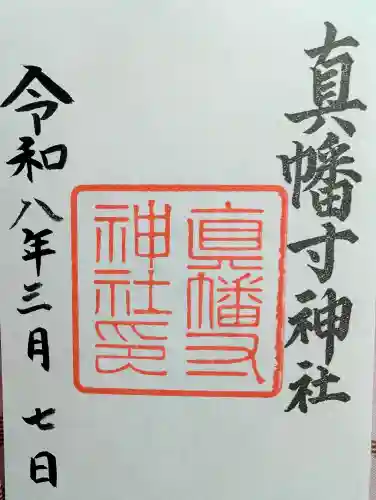 真幡寸神社
真幡寸
神社印
令和八年三月七日